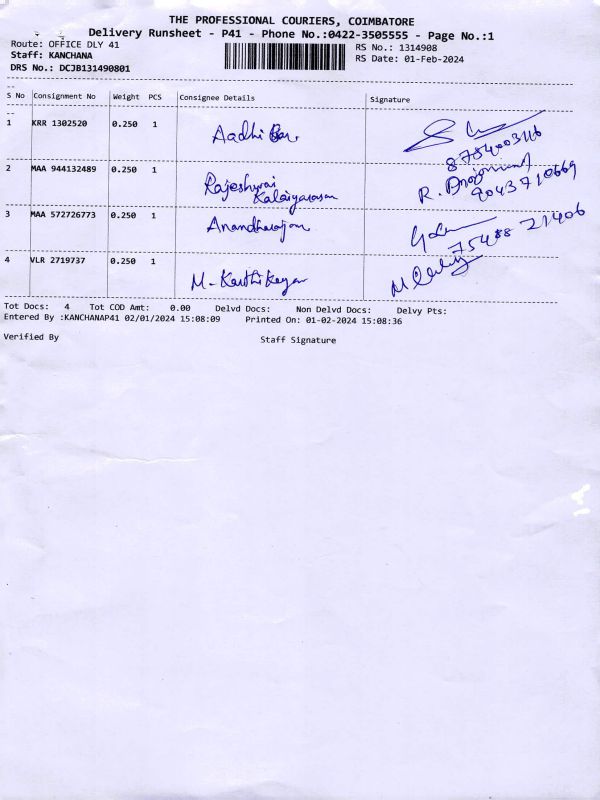 THE PROFESSIONAL COURIERS, COIMBATORE
Delivery Runsheet - P41 - Phone No.:0422-3505555 - Page No.:1
Route: OFFICE DLY 41 RS No.: 1314908
Staff: KANCHANA RS Date: 01-Feb-2024
DRS No.: DCJB131490801
S No Consignment No Weight PCS Consignee Details Signature
1 KRR 1302520 0.250 1 Aadhi
8754003116
2 MAA 944132489 0.250 1 Rajeshwari
Kalaiyarasan
R.
9043710669
3 MAA 572726773 0.250 1 Anandharajan
75488 21406
4 VLR 2719737 0.250 1 M. Karthikeyan
Tot Docs: 4 Tot COD Amt: 0.00 Delvd Docs: Non Delvd Docs: Delvy Pts:
Entered By :KANCHANAP41 02/01/2024 15:08:09 Printed On: 01-02-2024 15:08:36
Verified By Staff Signature